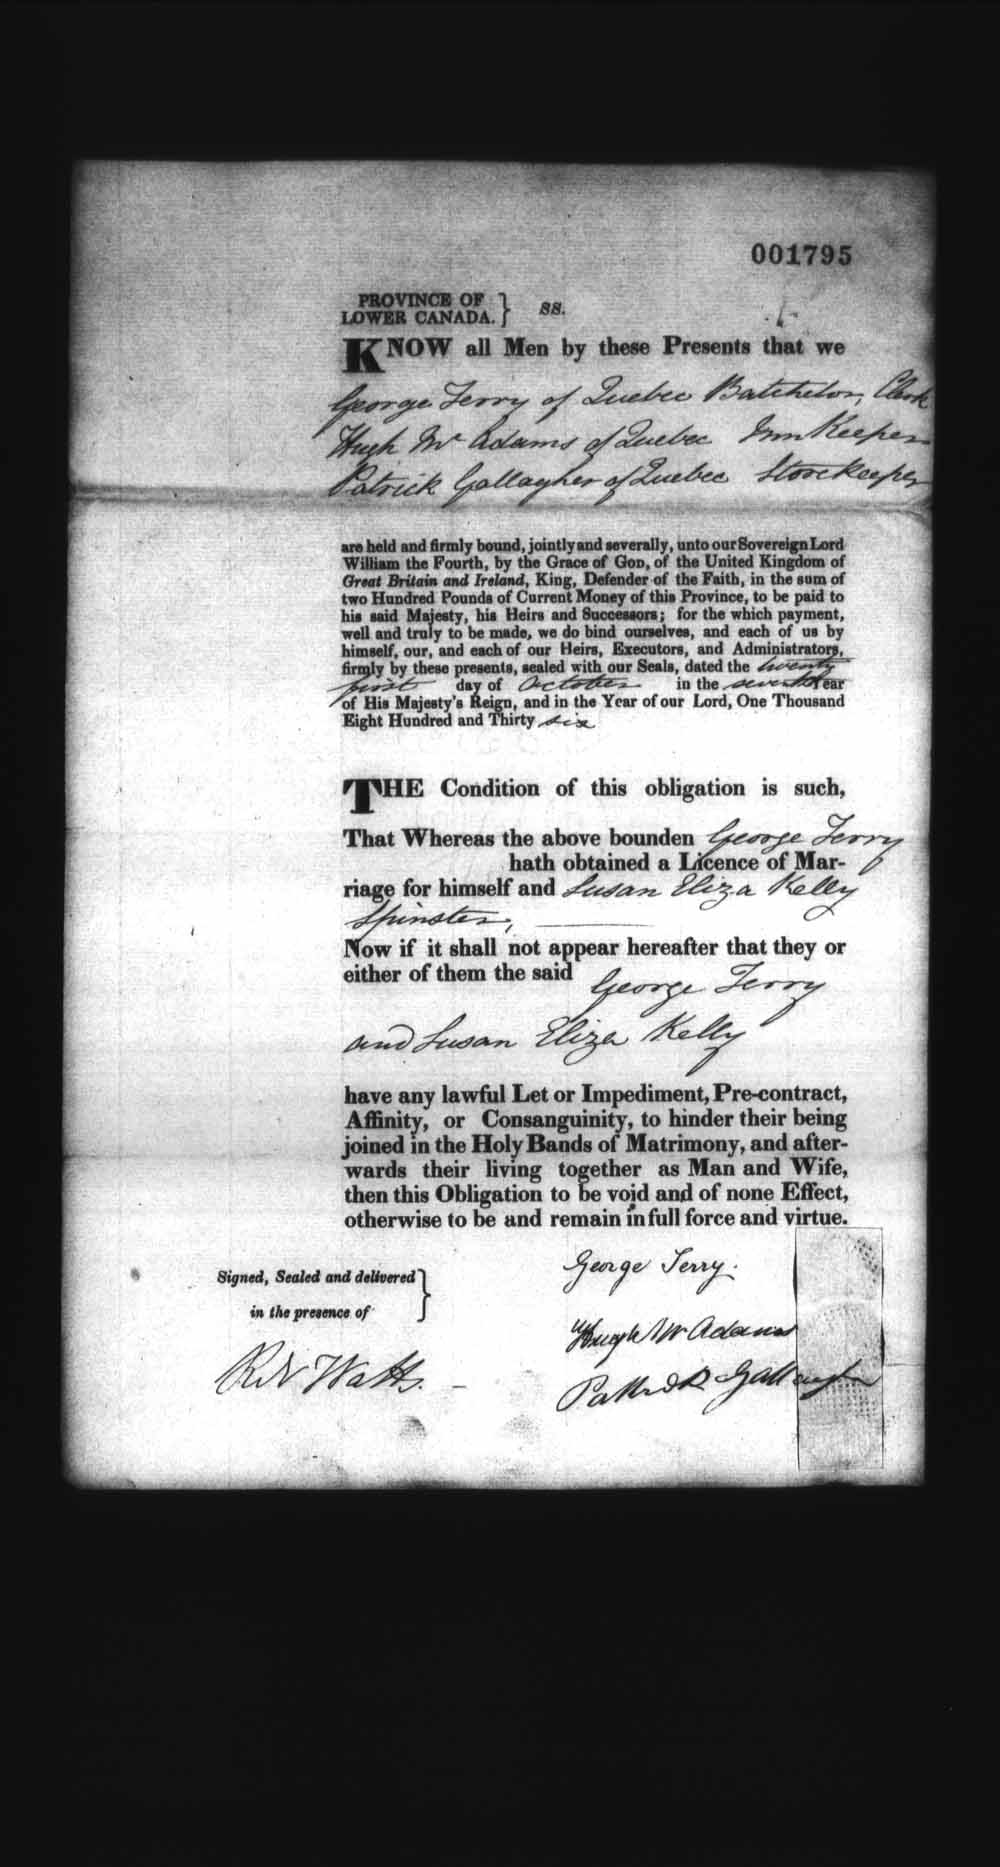 001795
PROVINCE OF
LOWER CANADA. } ss.
KNOW all Men by these Presents that we
George Terry of Quebec Batchelor, Clerk
Hugh Mc Adams of Quebec Inn Keeper
Patrick Gallagher of Quebec Storekeeper
are held and firmly bound, jointly and severally, unto our Sovereign Lord
William the Fourth, by the Grace of GOD, of the United Kingdom of
Great Britain and Ireland, King, Defender of the Faith, in the sum of
two Hundred Pounds of Current Money of this Province, to be paid to
his said Majesty, his Heirs and Successors; for the which payment,
well and truly to be made, we do bind ourselves, and each of us by
himself, our, and each of our Heirs, Executors, and Administrators,
firmly by these presents, sealed with our Seals, dated the twenty
first day of October in the seventh Year
of His Majesty's Reign, and in the Year of our Lord, One Thousand
Eight Hundred and Thirty six
THE Condition of this obligation is such,
That Whereas the above bounden George Terry
hath obtained a Licence of Mar-
riage for himself and Susan Eliza Kelly
Spinster,
Now if it shall not appear hereafter that they or
either of them the said George Terry
and Susan Eliza Kelly
have any lawful Let or Impediment, Pre-contract,
Affinity, or Consanguinity, to hinder their being
joined in the Holy Bands of Matrimony, and after-
wards their living together as Man and Wife,
then this Obligation to be void and of none Effect,
otherwise to be and remain in full force and virtue.
George Terry.
Signed, Sealed and delivered
in the presence of
Hugh Mc Adams
R N Watts.
Patrick Gallaugher